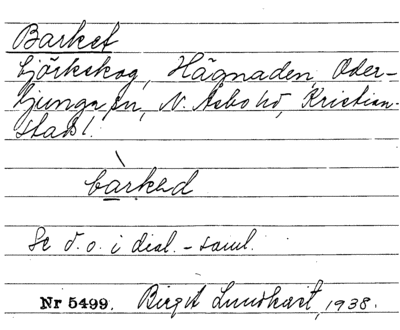 Barket
Björkskog, Hägnaden, Oder-
ljunga sn, N. Åsbo hd, Kristian-
stads l.
bàrkəd
Se d. o. i dial.-saml.
Nr 5499. Birgit Lundkvist, 1938.